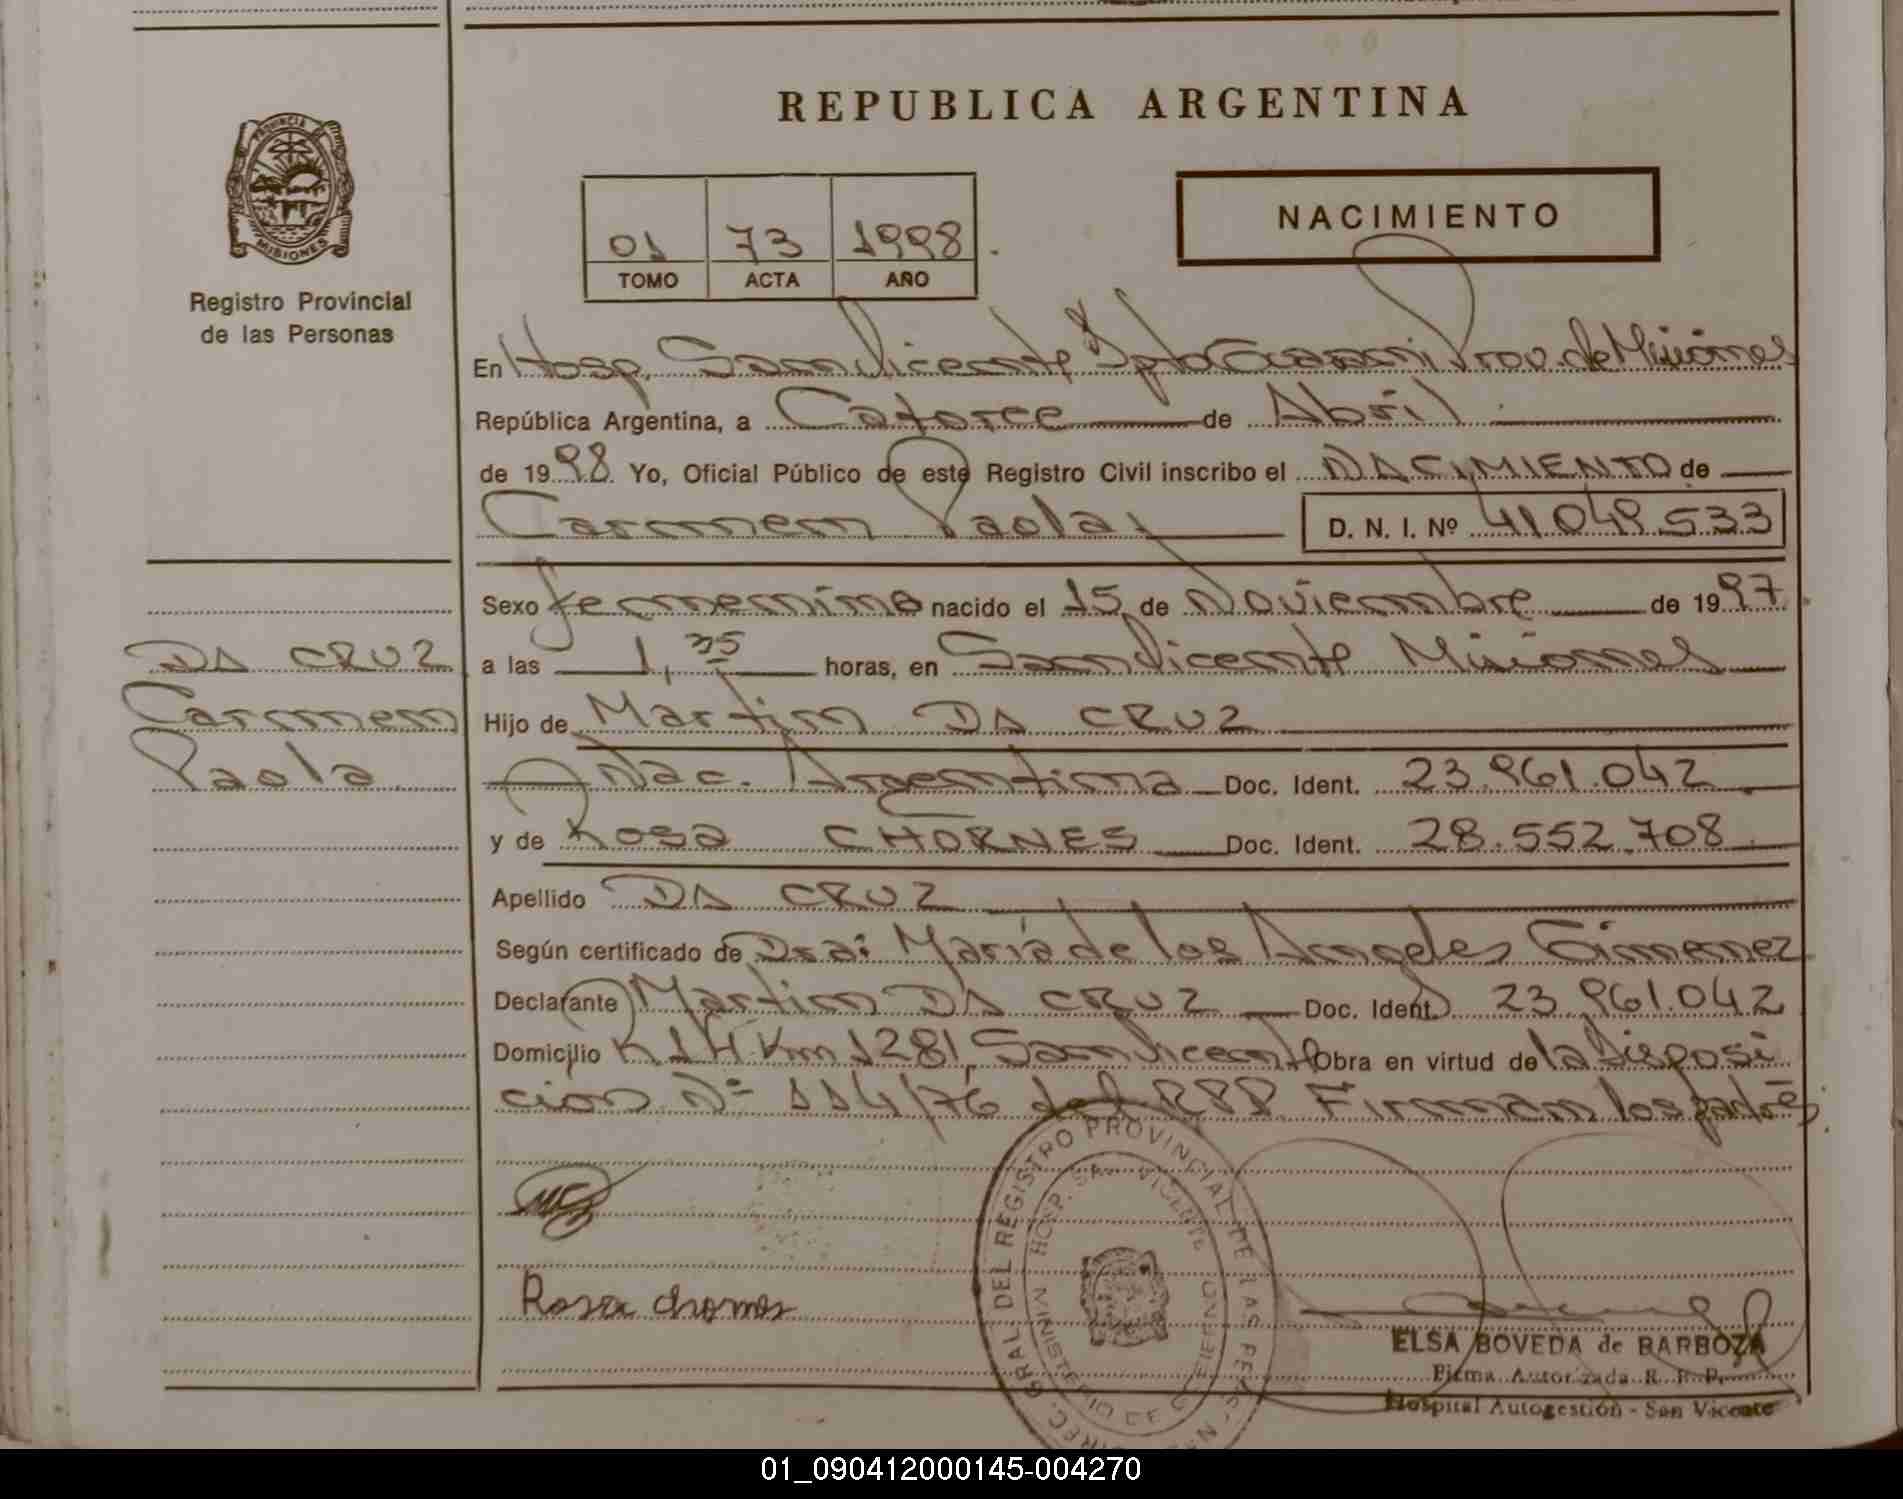 REPUBLICA ARGENTINA
PROVINCIA DE
MISIONES
Registro Provincial
de las Personas
01 73 1998
TOMO ACTA AÑO
NACIMIENTO
En Hosp. San Vicente Dpto Guarani Prov. de Misiones
República Argentina, a Catorce de Abril
de 1998 Yo, Oficial Público de este Registro Civil inscribo el NACIMIENTO de
Carmen Paola D. N. I. Nº 41.049.533
Sexo femenino nacido el 15 de Noviembre de 1997
a las 1,35 horas, en San Vicente Misiones
Hijo de Martin DA CRUZ
Nac. Argentina Doc. Ident. 23.961.042
y de Rosa CHORNES Doc. Ident. 28.552.708
Apellido DA CRUZ
Según certificado de Dra: María de los Angeles Gimenez
Declarante Martin DA CRUZ Doc. Ident. 23.961.042
Domicilio R 14 Km 1281 San Vicente Obra en virtud de la Disposi
cion Nº 114/76 del RPP Firman los padres.
DA CRUZ
Carmen
Paola
Rosa chornes
GRAL. DEL REGISTRO PROVINCIAL DE LAS PERSONAS
HOSP. SAN VICENTE
MINISTERIO DE GOBIERNO
ELSA BOVEDA de BARBOZA
Firma Autorizada R. P. P.
Hospital Autogestión - San Vicente
01_090412000145-004270